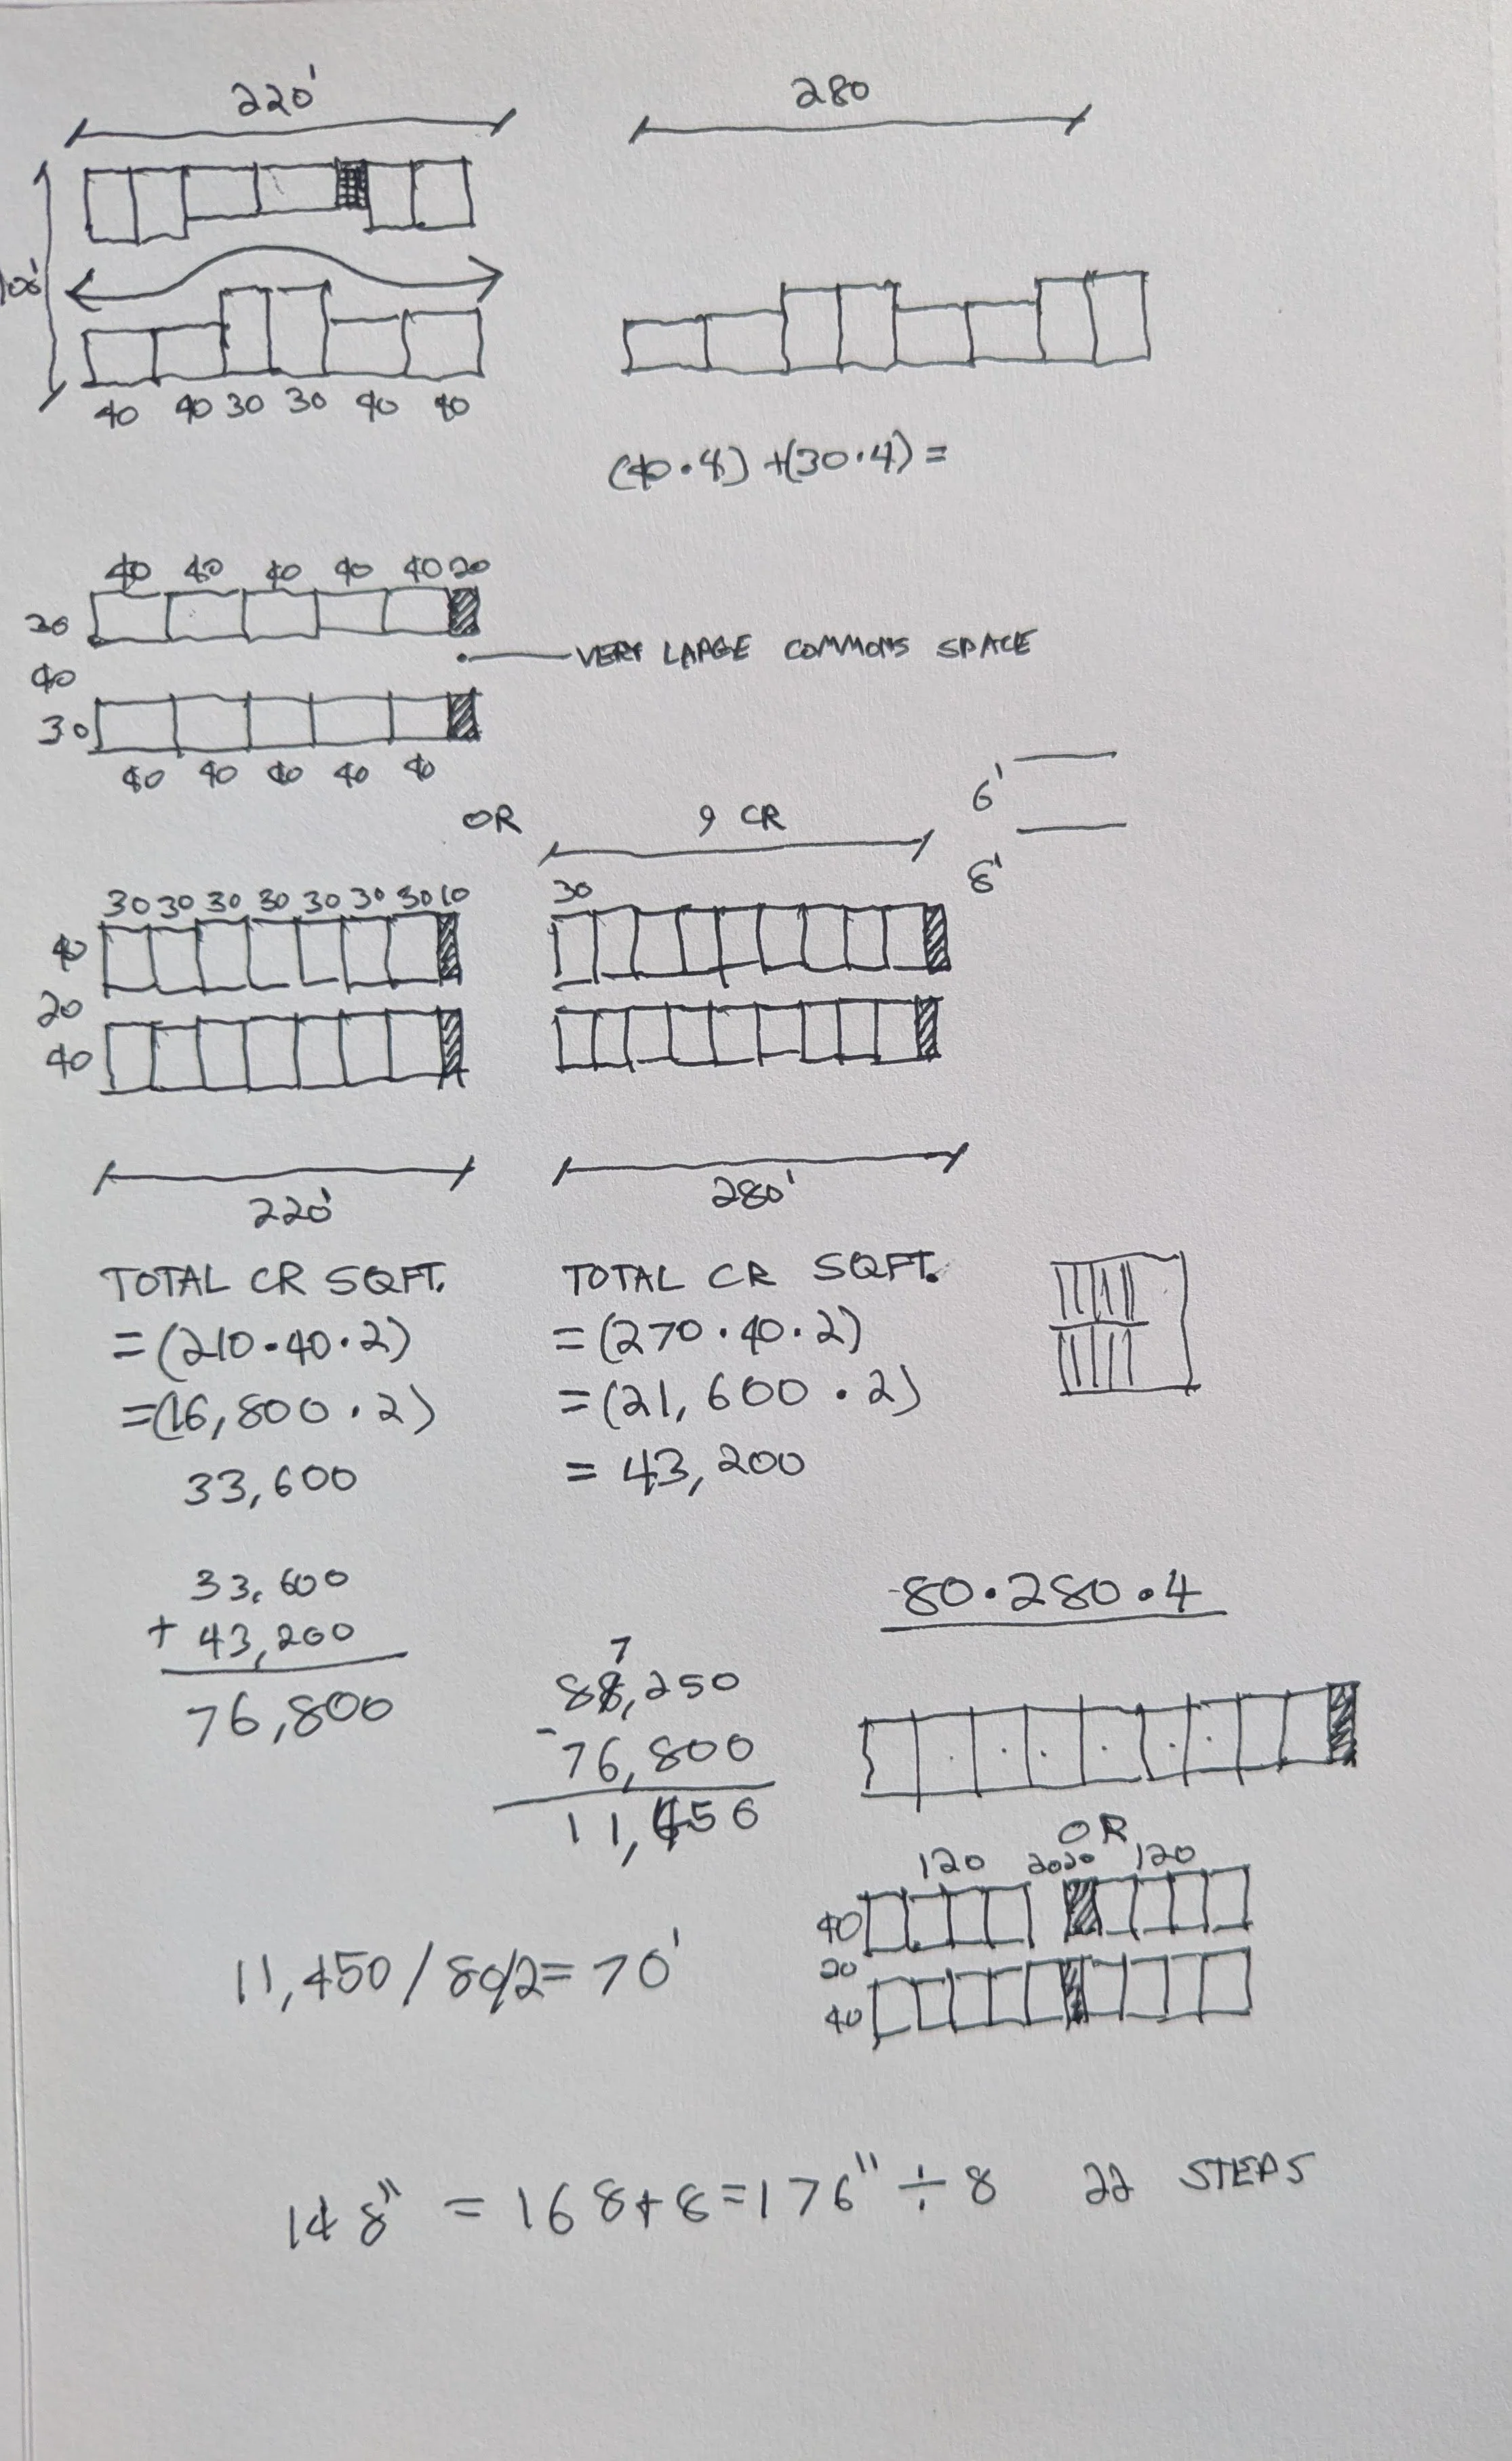 220'
280
100'
40 40 30 30 40 40
(40·4)+(30·4)=
40 40 40 40 40 20
30
VERY LARGE COMMONS SPACE
40
30
40 40 40 40 40
6'
OR
9 CR
8'
30 30 30 30 30 30 30 10
30
40
20
40
220'
280'
TOTAL CR SQFT.
=(210·40·2)
=(16,800·2)
33,600
TOTAL CR SQFT.
=(270·40·2)
=(21,600·2)
= 43,200
33,600
+ 43,200
76,800
7
88,250
- 76,800
11,450
80·280·4
OR
120 20 20 120
40
20
40
11,450/80/2=70'
14 8" = 168+8=176" ÷8 22 STEPS